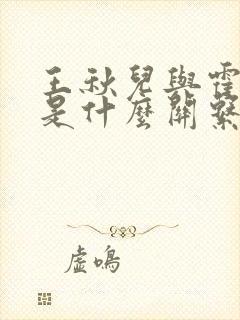 王秋兒與霍
是什麼關繫
虛鳴